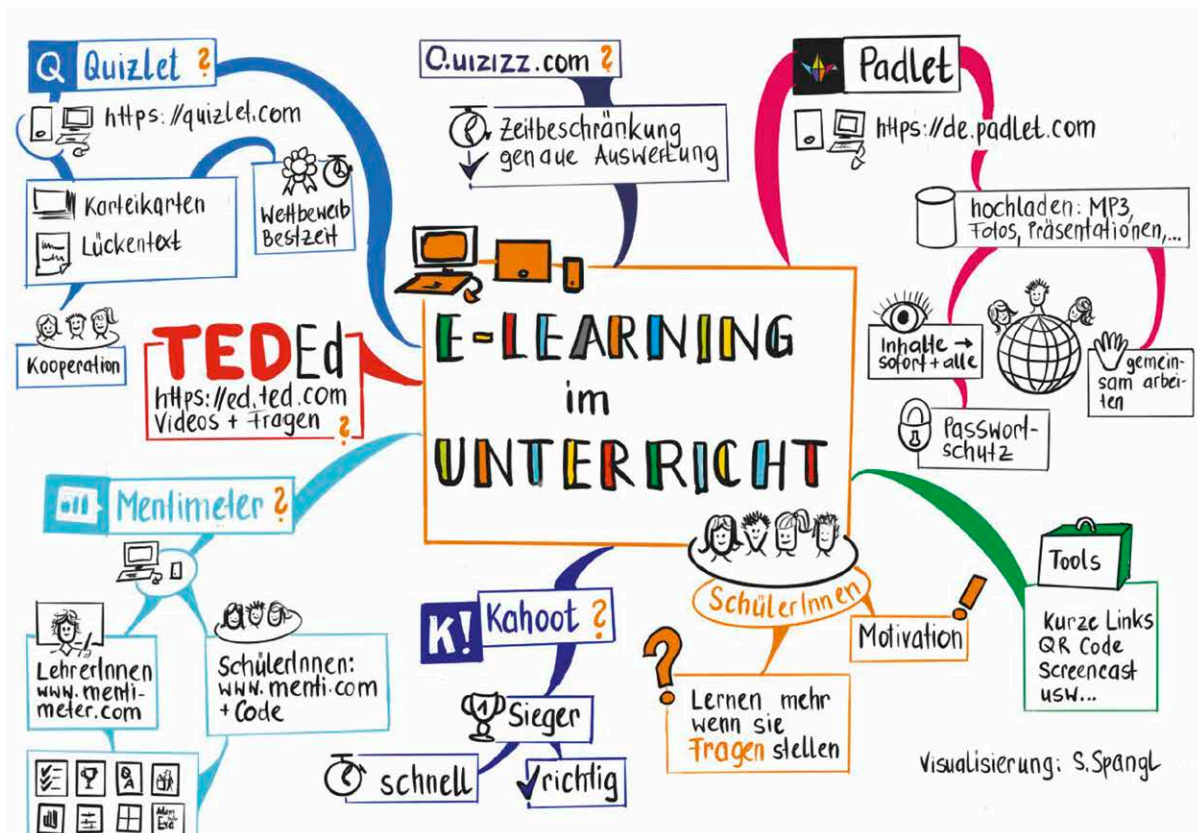 Q Quizlet ?
https://quizlet.com
Karteikarten
Lückentext
Wettbewerb
Bestzeit
Kooperation
Quizizz.com ?
Zeitbeschränkung
genaue Auswertung
Padlet
https://de.padlet.com
hochladen: MP3,
Fotos, Präsentationen,...
Inhalte →
sofort + alle
gemein-
sam arbei-
ten
Passwort-
schutz
TEDEd
https://ed.ted.com
Videos + Fragen
?
E-LEARNING
im
UNTERRICHT
Mentimeter ?
LehrerInnen
www.menti-
meter.com
SchülerInnen:
www.menti.com
+ Code
Q
A
K! Kahoot ?
1 Sieger
schnell
richtig
SchülerInnen
?
Lernen mehr
wenn sie
Fragen stellen
!
Motivation
Tools
Kurze Links
QR Code
Screencast
usw...
Visualisierung: S.Spangl